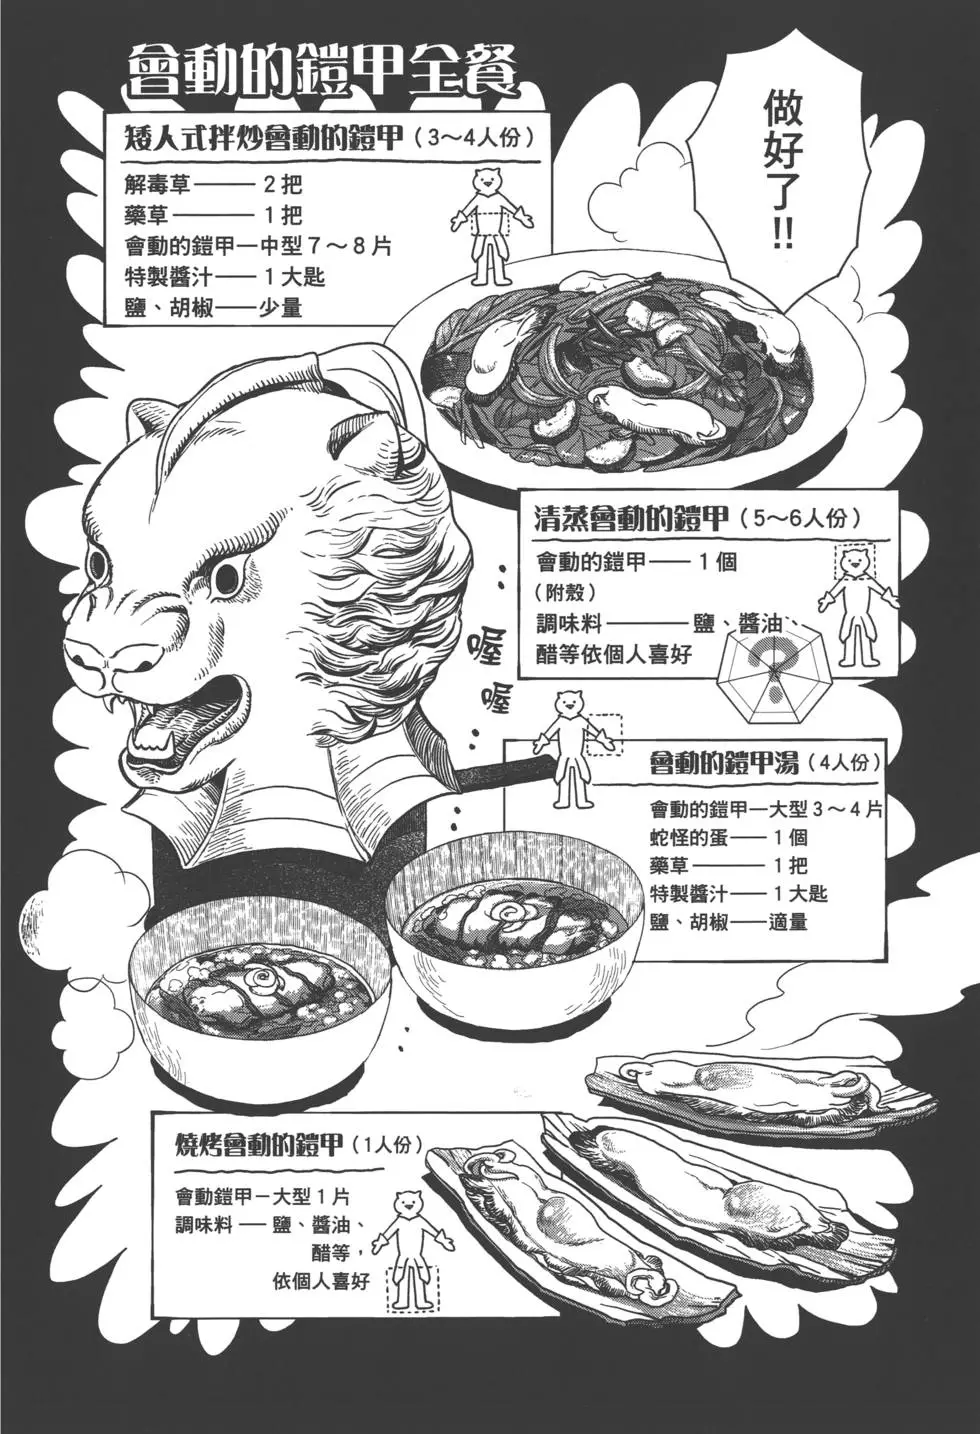 會動的鎧甲全餐
做好了!!
矮人式拌炒會動的鎧甲（3～4人份）
解毒草——2把
藥草——1把
會動的鎧甲—中型7～8片
特製醬汁——1大匙
鹽、胡椒——少量
清蒸會動的鎧甲（5～6人份）
會動的鎧甲——1個
（附殼）
調味料———鹽、醬油、
醋等依個人喜好
?
喔
喔
會動的鎧甲湯（4人份）
會動的鎧甲—大型3～4片
蛇怪的蛋——1個
藥草———1把
特製醬汁——1大匙
鹽、胡椒——適量
燒烤會動的鎧甲（1人份）
會動鎧甲—大型1片
調味料——鹽、醬油、
醋等，
依個人喜好